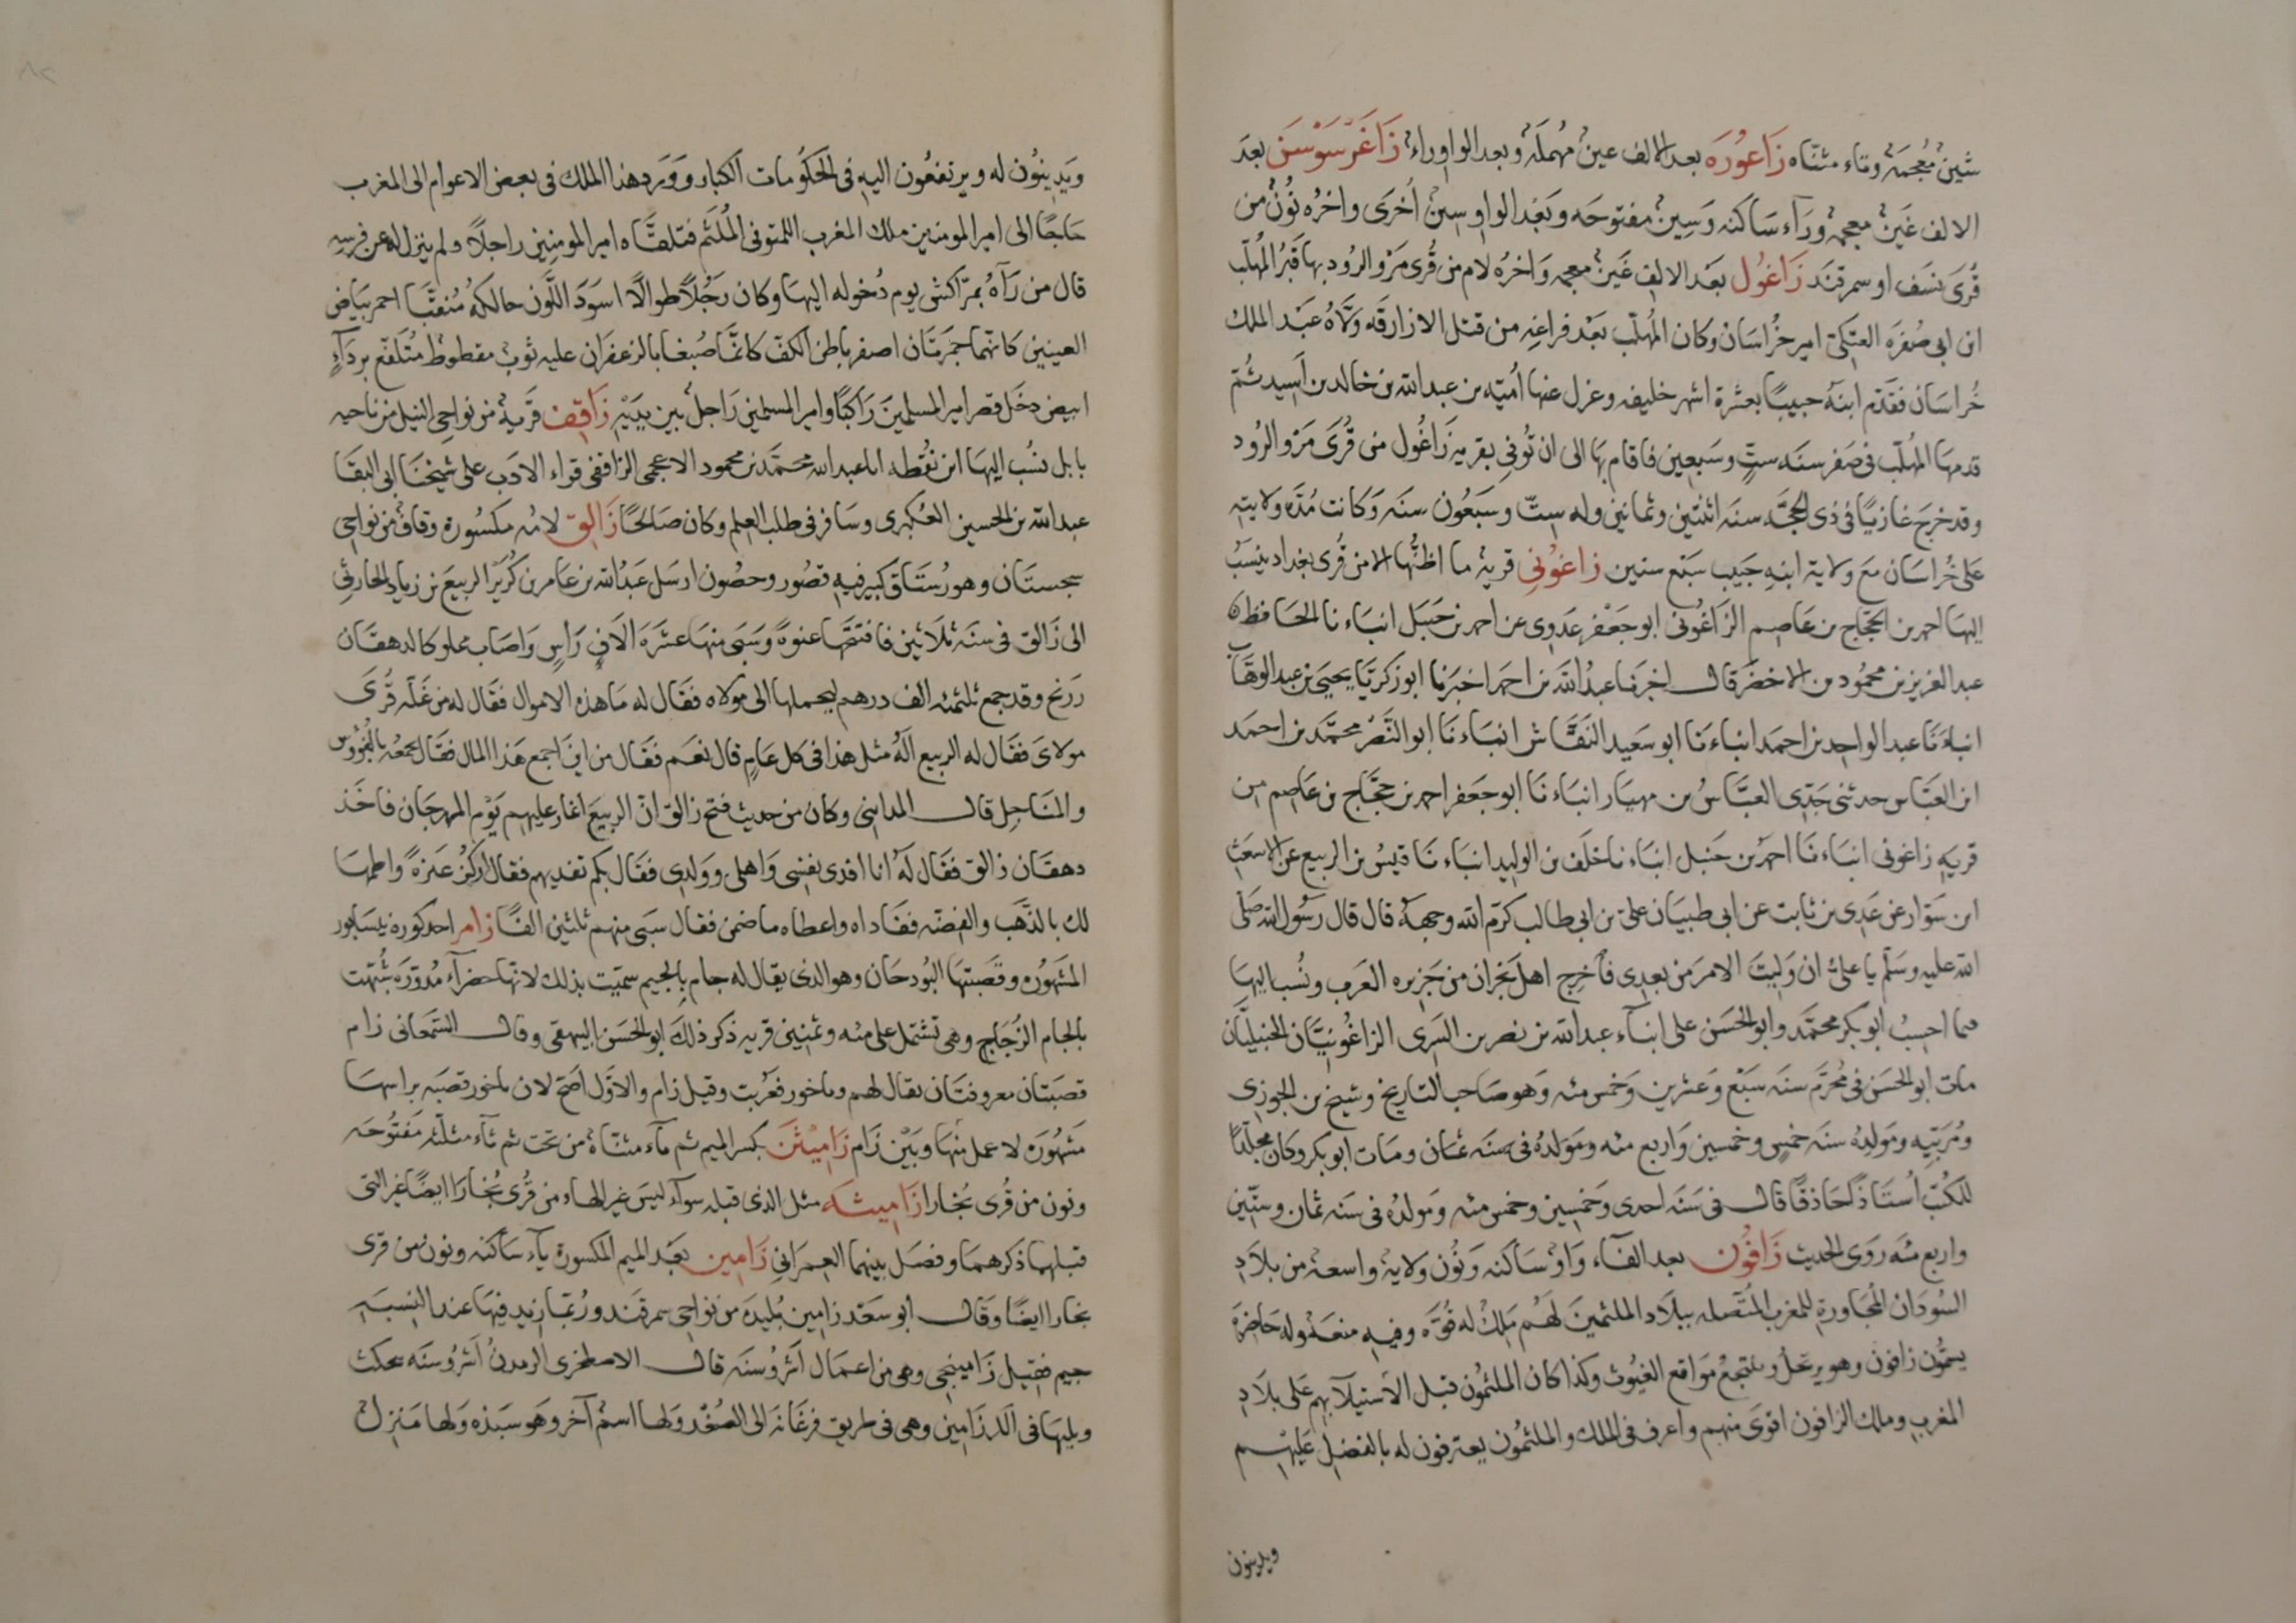 شينٌ معُجمَة وتاء مثنّاه زَاعوُرَه بعد الالف عينٌ مهُملَة وبعد الواو راءٌ زَاغَرْسَوْسَن بعدَ
الالف غَينٌ معجمه ورَآء سَاكنه وَسِينٌ مفتوحَه وبَعْد الواو سينٌ أُخرَى واخرُه نُونٌ من
قُرَى نسَف او سمرقنَد زَاغوُل بعَد الالف غَينٌ معجمه وَاخرُه لام من قُرى مَرْو الرُود بها قَبُر المُهلّب
ابن ابى صُفرَه العَتَكىّ امير خُراسَان وكان المُهلّب بعَد فراغِه من قتل الازارقَه ولّاهُ عبَد الملك
خُراسَان فقدّم ابنَهُ حبيبًا بعشرة اشهر خليفه وعزل عنها أُميّه بن عبدالله بن خالد بن أَسِيد ثُمّ
قدمهَا المُهلّب فى صَفر سنَه ستٍّ وسَبعين فاقام بهَا الى ان تُوفي بقريه زَاغُول من قُرَى مَرْو الرُود
وقد خرجَ غازيًا فى ذى الحجَّه سنَه اثنتين وثمانين وله ستّ وسَبعُون سنَه وَكانت مُدّه ولايتِه
عَلى خُراسَان مَع ولاية ابنهِ حَبيب سَبْع سنين زاغوُنى قريةٌ ما اظنُّها الا من قُرى بغداد ينسَبُ
اليهَا احمد بن الحَجّاج بن عَاصِم الزَاغُونى ابو جَعْفر عَدوى عن احمد بن حَنبَل انبَاء نا الحَافظ
عبد العَزيز بن محمُود بن الاخضَر قال اخبرنا عبدُ الله بن احمد اخبَرنا ابو زكريَّا يحيى بن عبد الوهَّاب
انباءَنَا عبد الواحِد بن احمَد انباءَنا ابو سَعيد النقَّاش انبَاءنَا ابو النَّصْر محمَّد بن احمَد
ابن العَبّاس حدثنى جَدّى العبَّاسُ بن مهيَار انبَاءنَا ابو جعَفر احمد بن حجَّاج بن عَاصم من
قريَه زاغونى انبَاءنَا احمدُ بن حَنبل انبَاءنا خلَف بن الوليد انبَاءنَا قيسُ بن الربيع عن الاشعَث
ابن سَوّار عن عَدِى بن ثابت عن ابى ظبيَان علىّ بن ابى طالب كرّم الله وجههُ قال قال رسُول الله صَلّى
الله عليه وسَلّم يا علىُّ ان وَليتَ الامرَ من بعدِى فأَخرِج اهلَ نجران من جَزيره العَرب ونُسب اليهَا
فيما احسِبُ ابو بكر محمَّد وابو الحسَن على ابنآء عبدالله بن نصر بن السَرِى الزاغُونيَّان الحنبليَّان
مات ابو الحسَن فى مُحَرَّم سنَه سَبْع وَعشرين وَخمس مئه وَهو صَاحب التاريخ وشيخ بن الجوزى
ومُربّيه ومَولدِهُ سنَه خمسٍ وخمسين وَاربع مئه ومَولدُهُ فى سنَه ثمان ومَات ابو بكر وكان مجلّدًا
للكُتبُ أُستاذًا حَاذقًا قال فى سنَه احدى وَخمسين وخمس مئه وَمولدُه فى سنَه ثمان وستّين
واربع مئَه روَى الحديث زَافوُن بعد الفآء وَاوٌ سَاكنه وَنُون ولايةٌ واسعةٌ من بلَادِ
السُودَان المُجَاورة للمغرب المُتّصله ببلَاد الملثمين لَهُم مَلِكٌ له قُوَّه وفيه منعَه وله حَاضرَة
يسمّون زافون وهو يرتحلُ وينتجعُ مَواقع الغيُوث وكذا كان الملثمُون قبل الاستيلآيهم على بلَادِ
المغرب وملك الزافون اقوَى منهم واعرف فى الملك والملثمُون يعترفون له بالفضل عليهم
ويدينون
ويَدينوُن له ويرتفعُون اليه فى الحكوُمات الكبار ووَرَد هذا الملك فى بعض الاعوام الى المغرب
حَاجًا الى امير المومنين ملك المغرب اللمتونى المُلثَّم فتلقَّاه امير المومنين راجلًا ولم ينزل له عن فرسِه
قال من رَآهُ بمَرّاكش يوم دُخوله اليها وكان رَجُلًا طوالًا اسوَدَ اللَّون حالكهُ مُنقبَّا احمر بيَاض
العينين كانّهما جَمرتَان اصفر باطن الكفّ كانمّا صُبغا بالزعفَران عليه ثوبٌ مقطوطٌ مُتَلفّع بردَآءٍ
ابيض دخَل قصر امير المسلمينَ رَاكبًا وامير المسلمين رَاجلٌ بين يدَيْه زَاقِف قَريةٌ من نواحى النيل من ناحيه
بابل نسُب اليهَا ابن نقُطه ابا عبدالله محمّد بن محمود الاعجمى الزاقفى قراء الادَب على شيخنَا ابى البقَا
عبدالله بن الحسين العُكبرى وسَافر فى طلب العِلم وكان صَالحًا زَالِق لامُه مكسُورة وقافٌ من نواحى
سجستَان وهو رُستَاق كبير فيه قصُور وحصُون ارسَل عَبدُ الله بن عَامر بن كُرَيْز الربيعَ بن زياد الحارثى
الى زَالق فى سنَه ثلَاثين فافتتَحَها عنوةً وَسَبَى منهَا عشَرَه الَافِ رَاسٍ وَاصَاب مملوكا لدهقَان
زرنج وقد جمع ثلثمئه الف درهم ليحملها الى مَولاه فقَال له مَا هذه الاموال فقَال له من غلّه قُرَى
مولاىَ فقَال له الربيع ألَهُ مثل هذا فى كل عَامٍ قال نعَم فقَال من اين اجمع هَذا المال فقَال يجمعُه بالفُؤوس
والمنَاجِل قال المداينى وكان من حديث فتح زالق انّ الربيعَ اغار عليهم يَوْم المهرجَان فاخَذ
دهقَان زالق فقَال لهُ انا افدى نفسى وَاهلى ووَلدِى فقَال بكم تفديهم فقال اركِزُ عَنزةً واطمهَا
لك بالذّهَب والفضّه ففَاداه واعطاه ما ضمن فقال سَبى منهم ثلثين الفًا زَامر احد كوره نيسَابور
المشَهوُره وقَصبتهَا البُوزجَان وهو الذى يقال له جام بالجيم سميّت بذلك لانّها خضرآء مُدوّرَه شُبّهت
بالجام الزُجَاج وهى تشتمل على مئه وثمنين قريه ذكر ذلكَ ابو الحسَن البيهقى وقال السّمعانى زام
قصبَتان معروفتَان يقال لهم وباخرز فعرّبت وقيل زام والاوّل اصَحّ لان باخرز قصبَه براسهَا
مَشهُورَه لا عمل بنهَا وبَيْن زَام زَامِيْثَن بكسر الميم ثم يآء مثنّاة من تحت ثم ثآء مثلّثه مفَتُوحَه
ونون من قُرى بُخارا زَامِيثَه مثل الذى قبله سوآء ليسَ غير الهاء من قُرى بُخارَا ايضًا غير التى
قبلها ذكرهمَا وفصَل بينهما العِمرَانىِ زَامِين بعَد الميم المكسورة يآء سَاكنه ونون من قرى
بخارا ايضًا وقَال ابو سَعَد زامين بُليدَه من نواحى سمرقنَد ورُبمَّا زيد فيهَا عند النِسبَه
جيم فقيل زَامينجى وهى من اعمَال اَشرُوسنَه قال الاصطخرى المدنُ اَشرُوسنَه بنجكث
ويليهَا فى الكَبر زَامِين وهى فى طريق فرغَانَه الى الصُغْد وَلها اسمٌ آخر وَهو سبَذه وَلها مَنزلٌ